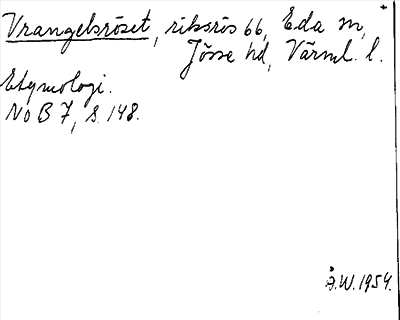 Vrangelsröset, riksrös 66, Eda sn,
Jösse hd, Värml. l.
Etymologi.
NoB 7, s. 148.
Å.W. 1954.